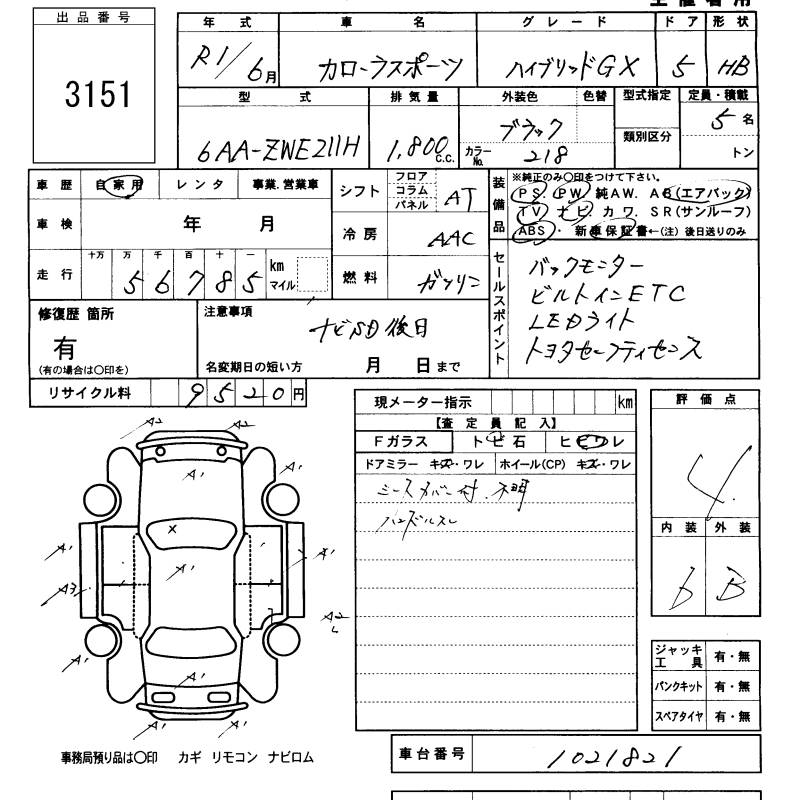 出品番号
3151
年式 車名 グレード ドア 形状
R1/6月 カローラスポーツ ハイブリッドGX 5 HB
型式 排気量 外装色 色替 型式指定 定員・積載
6AA-ZWE211H 1,800c.c. ブラック カラーNo. 218 類別区分 5名
トン
車歴 自家用 レンタ 事業.営業車
車検 年 月
走行 十万 万 千 百 十 一
56785 km マイル
シフト フロア コラム パネル AT
冷房 AAC
燃料 ガソリン
装備品
※純正のみ〇印をつけて下さい。
PS PW 純AW. AB(エアバック)
TV ナビ. カワ. SR(サンルーフ)
ABS・新車保証書←(注)後日送りのみ
セールスポイント
バックモニター
ビルトインETC
LEDライト
トヨタセーフティセンス
修復歴 箇所
有
(有の場合は〇印を)
注意事項
ナビSD後日
名変期日の短い方 月 日まで
リサイクル料 9520円
現メーター指示 km
【査定員記入】
Fガラス トビ石 ヒビワレ
ドアミラー キズ・ワレ ホイール(CP) キズ・ワレ
シートカバー付.不明
ハンドルスレ
評価点
4
内装 外装
6 B
A2 A2
A1 A1 A1
X
A1 A1
A1
A3
A2
A1 A1
A2 A2
ジャッキ工具 有・無
パンクキット 有・無
スペアタイヤ 有・無
事務局預り品は〇印 カギ リモコン ナビロム
車台番号 1021821